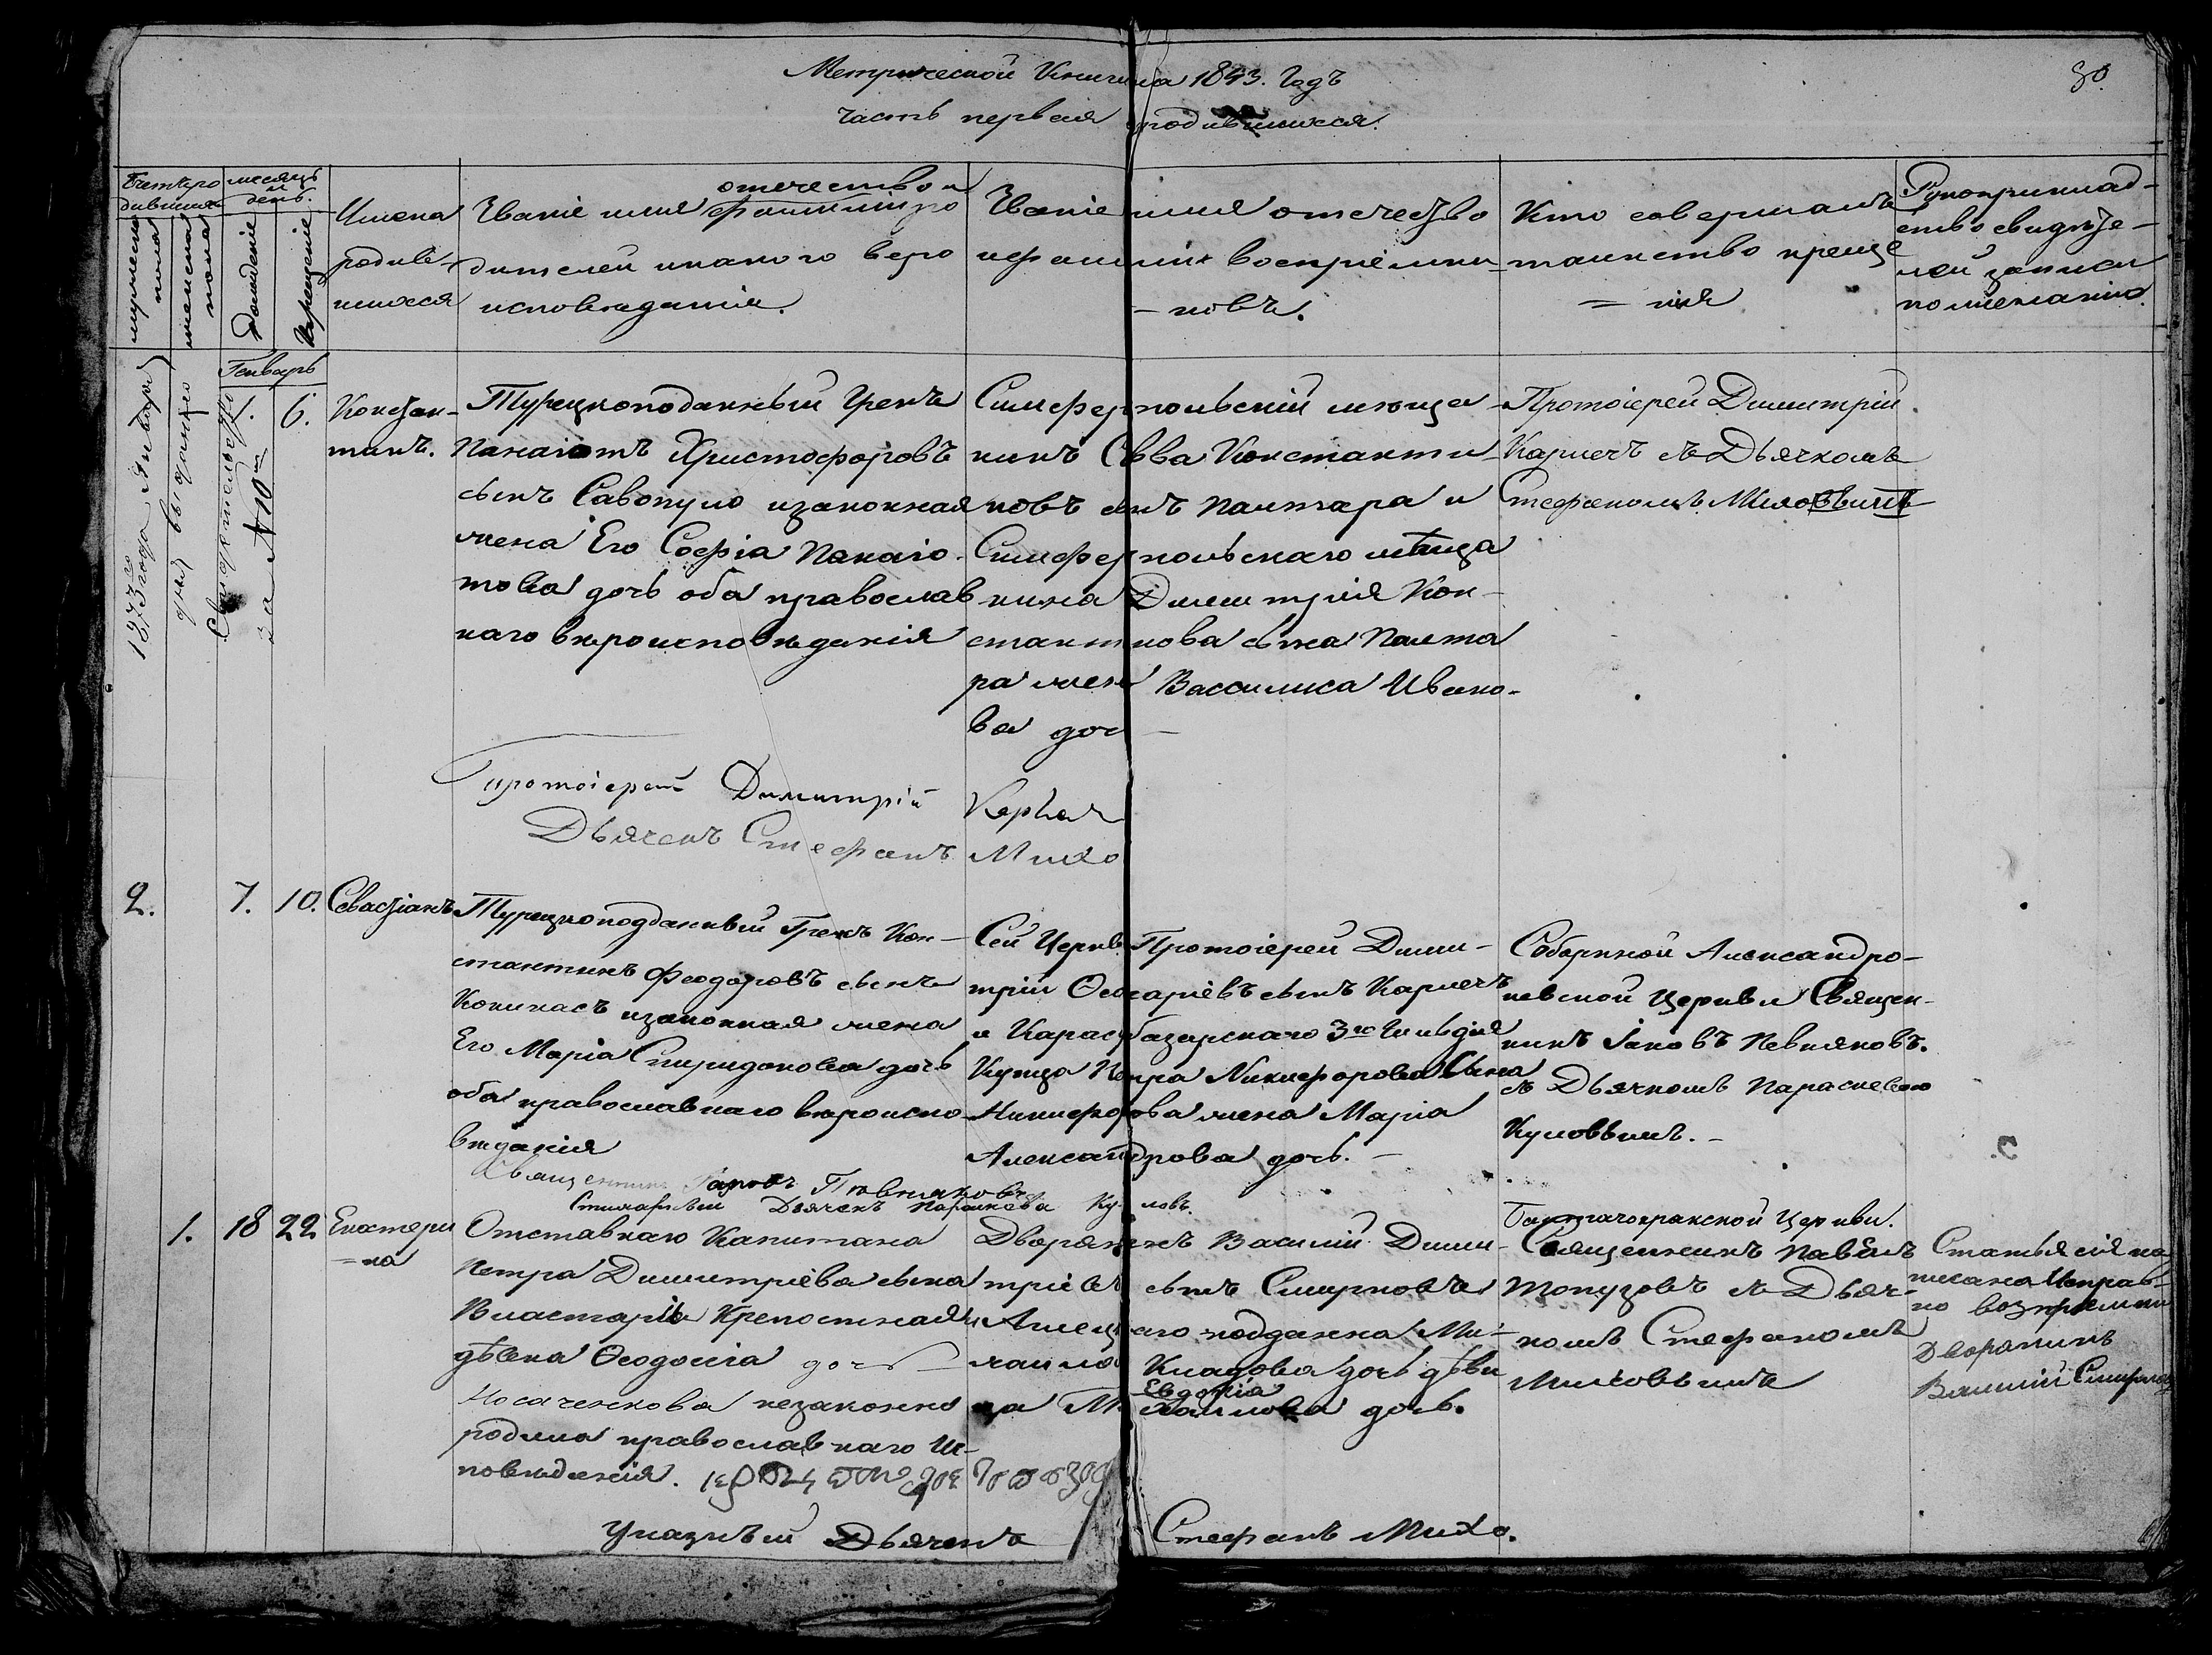 Метрической Книги на 1843. Годъ
80.
часть первая о родившихся.
Счет родившихся
мужеска пола
женска пола
месяцъ и день.
Рождение
Крещение
Имена родив-
шихся
Звание имя отечество и фамилия ро
дителей и какого веро
исповедания.
Звание имя отечество
и фамилия восприемни-
-ковъ.
Кто совершалъ
таинство креще
=ния
Рукоприклад-
ство свидете-
лей записи
по желанию.
Генварь
1873 года Января
дня выдано
Свидетельство
за №10
1.
6.
Констан-
тинъ.
Турецкоподанный Грекъ
Панаіотъ Христофоровъ
сынъ Савопуло изаконная
жена Его Софіа Панаіо-
това дочь оба православ
наго вѣроисповѣданія
Симферопольскій мѣща-
нинъ Савва Константи-
новъ сынъ Палтара и
Симферопольскаго мѣща
нина Димитрия Кон-
стантинова сына Палта
ра жена Василиса Ивано-
ва доч
Протоіерей Димитрій
Карпечъ съ Дьячкомъ
Стефаномъ Миховымъ
Протоіерей Димитрій
Дьячекъ Стефанъ Михо
2.
7.
10.
Севастіанъ
Турецкоподданный Грекъ Кон-
стантинъ Феодоровъ сынъ
Кокинасъ изаконная жена
Его Маріа Спиридонова дочь
оба православнаго вѣроиспо-
вѣданія
Сей Церкв. Протоіерей Дими-
трій сынъ Карпечъ
и Карасубазарскаго 3й Гильдіи
Купца Петра Никифорова Сына
Никифорова жена Маріа
Александрова дочь.-
Соборной Александро-
невской Церкви Священ-
никъ Іаковъ Певняковъ.
съ Дьячкомъ Параскевою
Куловымъ.-
Священникъ Іаковъ Пѣвняковъ
Стихарный Дьячекъ Параскева Куловъ.
1.
18
22
Екатери
=на
Отставнаго Капитана
Петра Димитріева сына
Властари Крепостная
дѣвка Феодосіа дочь
Носаченкова незаконно
родила православнаго Ис-
повѣденія.
Дворянинъ Василій Дими-
тріевъ сынъ Смирновъ
подданна Ми-
хаила дочь дѣви
ца Евдокіа
Михайлова дочь.
Церкви.
Священникъ Павелъ
Топузовъ съ Дьяч-
комъ Стефаномъ
Миховымъ
Статья сія на
писана Исправ-
но возпріемни
Дворянинъ
Василий Смирнов
Указный Дьячекъ Стефанъ Михо.